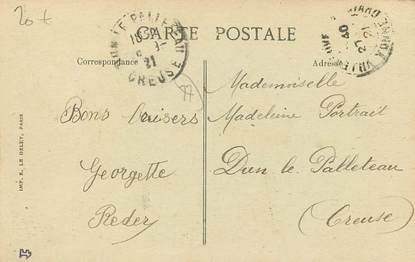 20 t
CARTE POSTALE
Correspondance
Adresse
DUN LE PALLETEAU
21
CREUSE
Bons Baisers
Georgette
Reder
Mademoiselle
Madeleine Portrait
Dun le Palleteau
(Creuse)
IMP. E. LE DELEY, PARIS